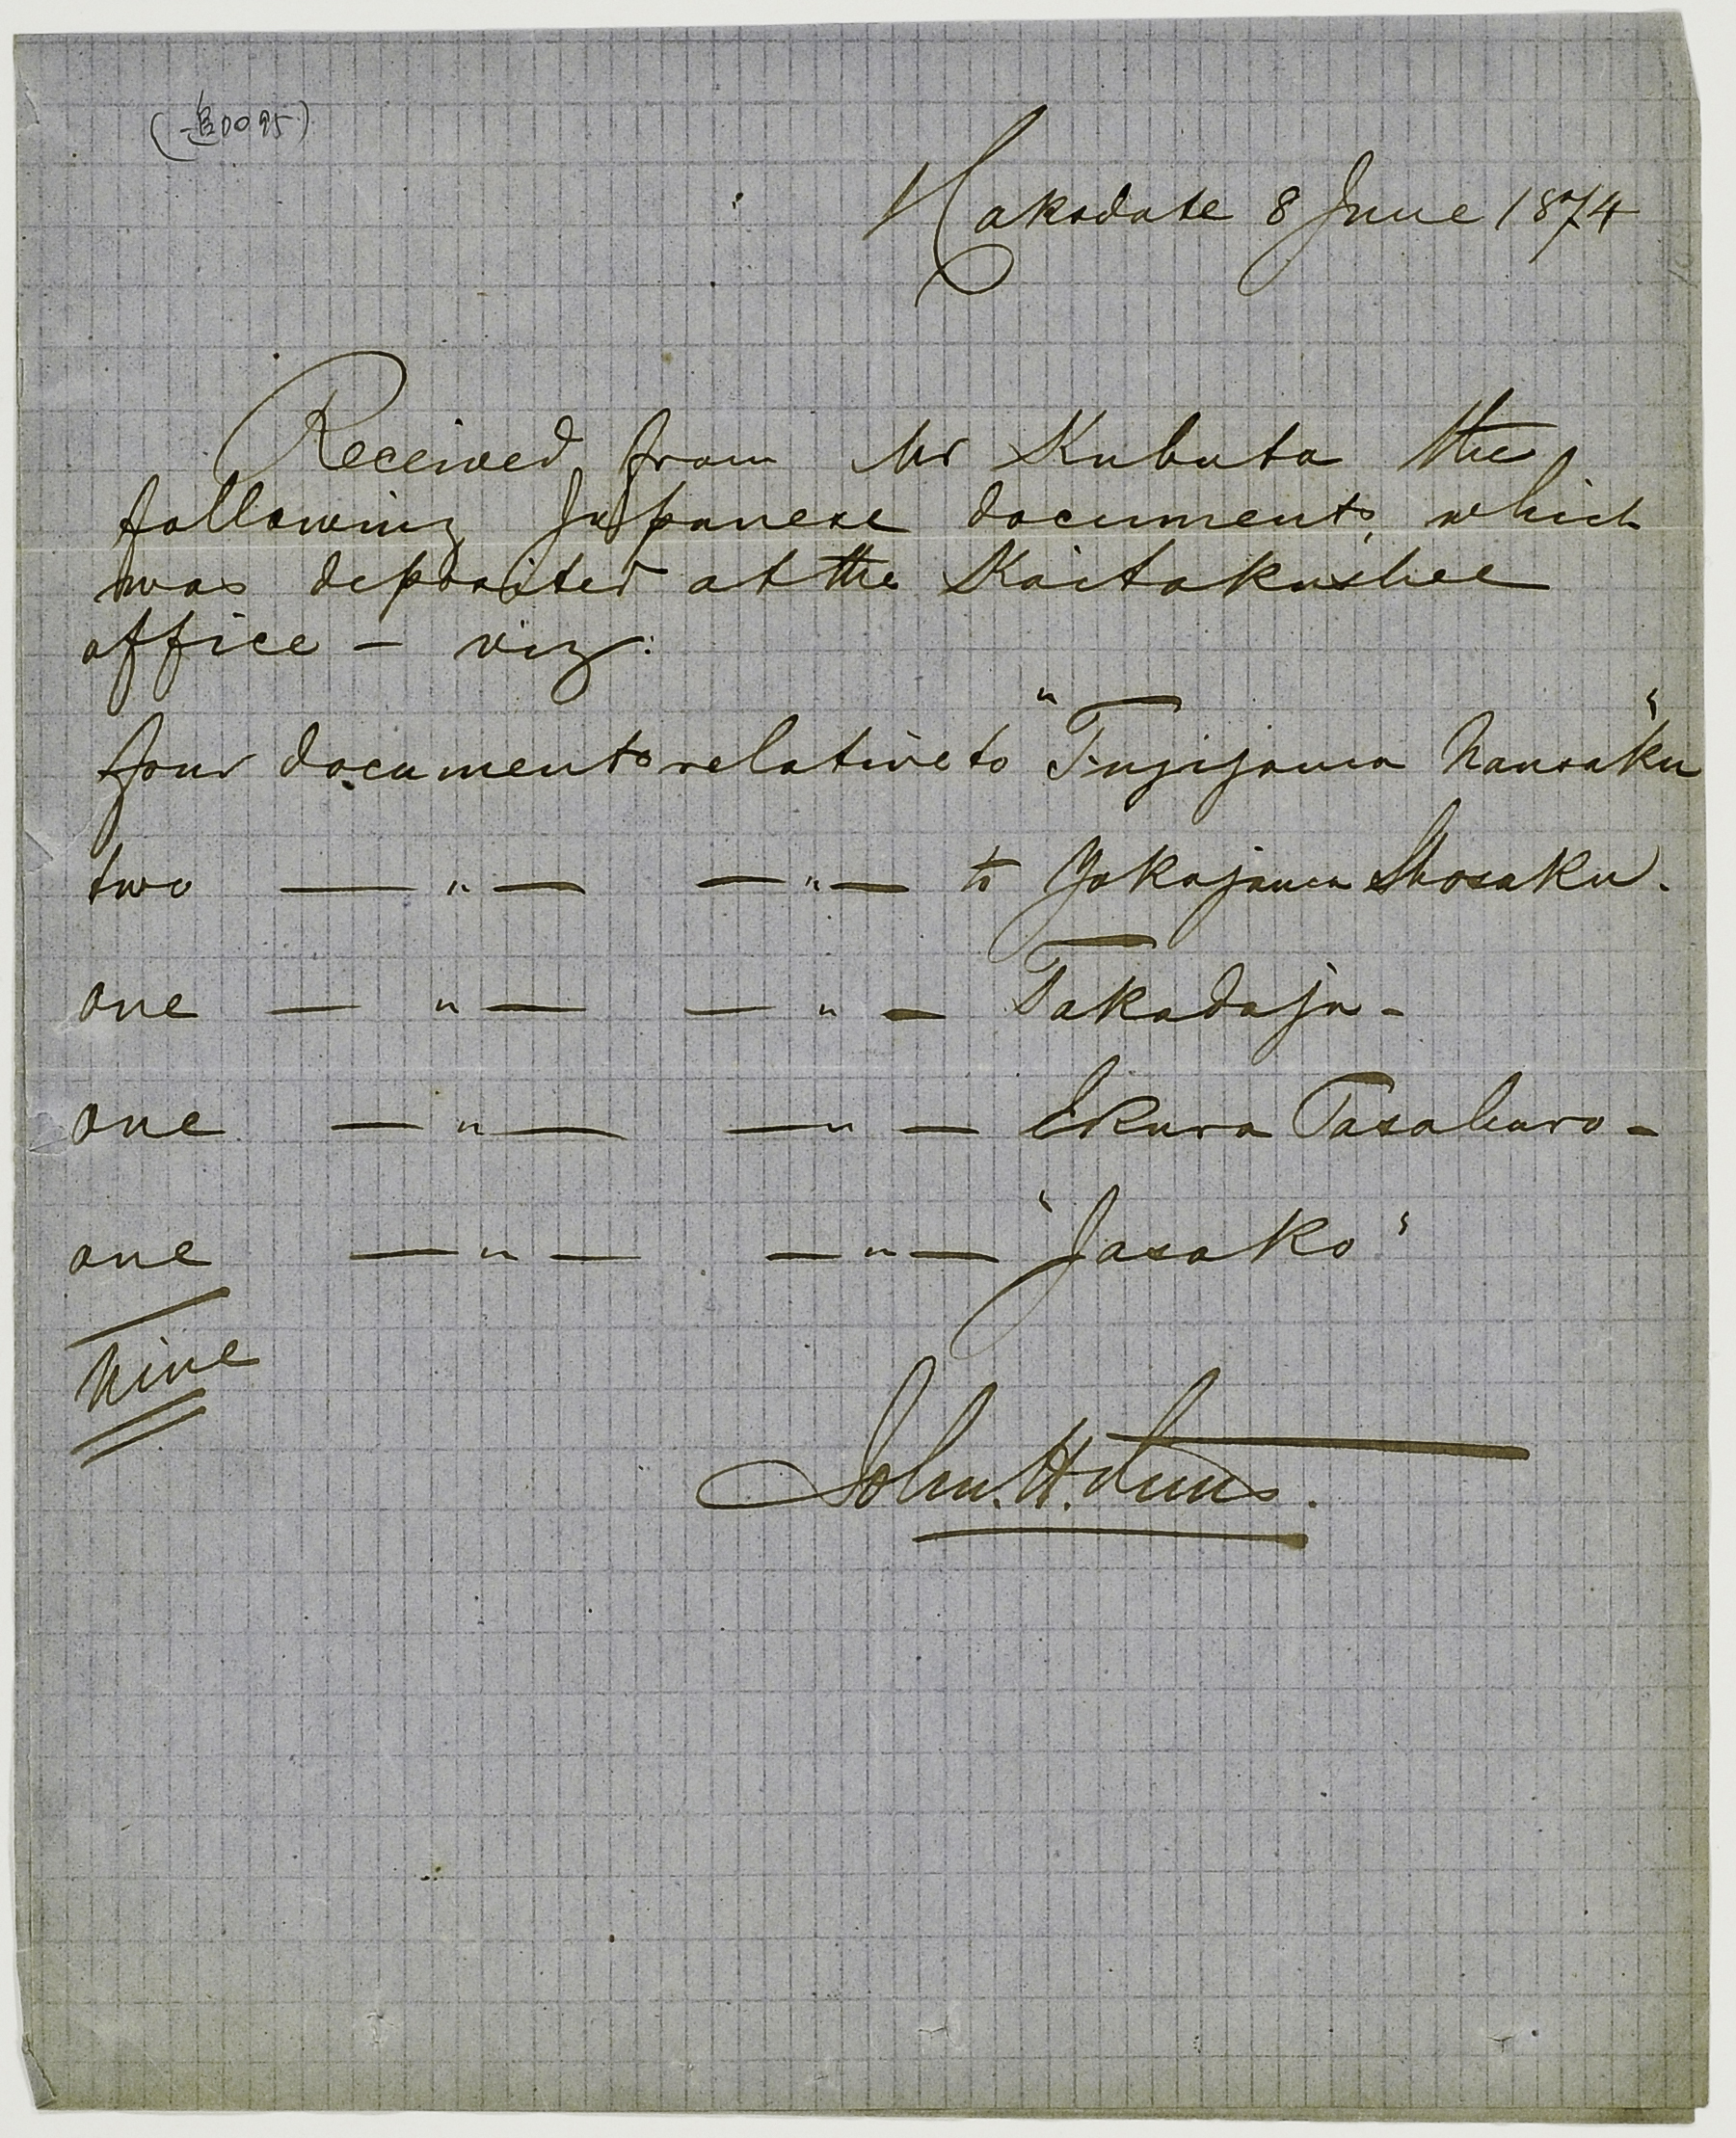 Hakodate 8 June 1874
Received from Mr Kubota the
following Japanese documents, which
was deposited at the Kaitakushee
office – viz:
four documents relative to "Fujijama Nansaku"
two — " — — " — to Yokojama Shosaku.
one — " — — " — Takadaja –
one — " — — " — Ekura Tasaburo –
one — " — — " — "Jasoko"
Nine
John. H.